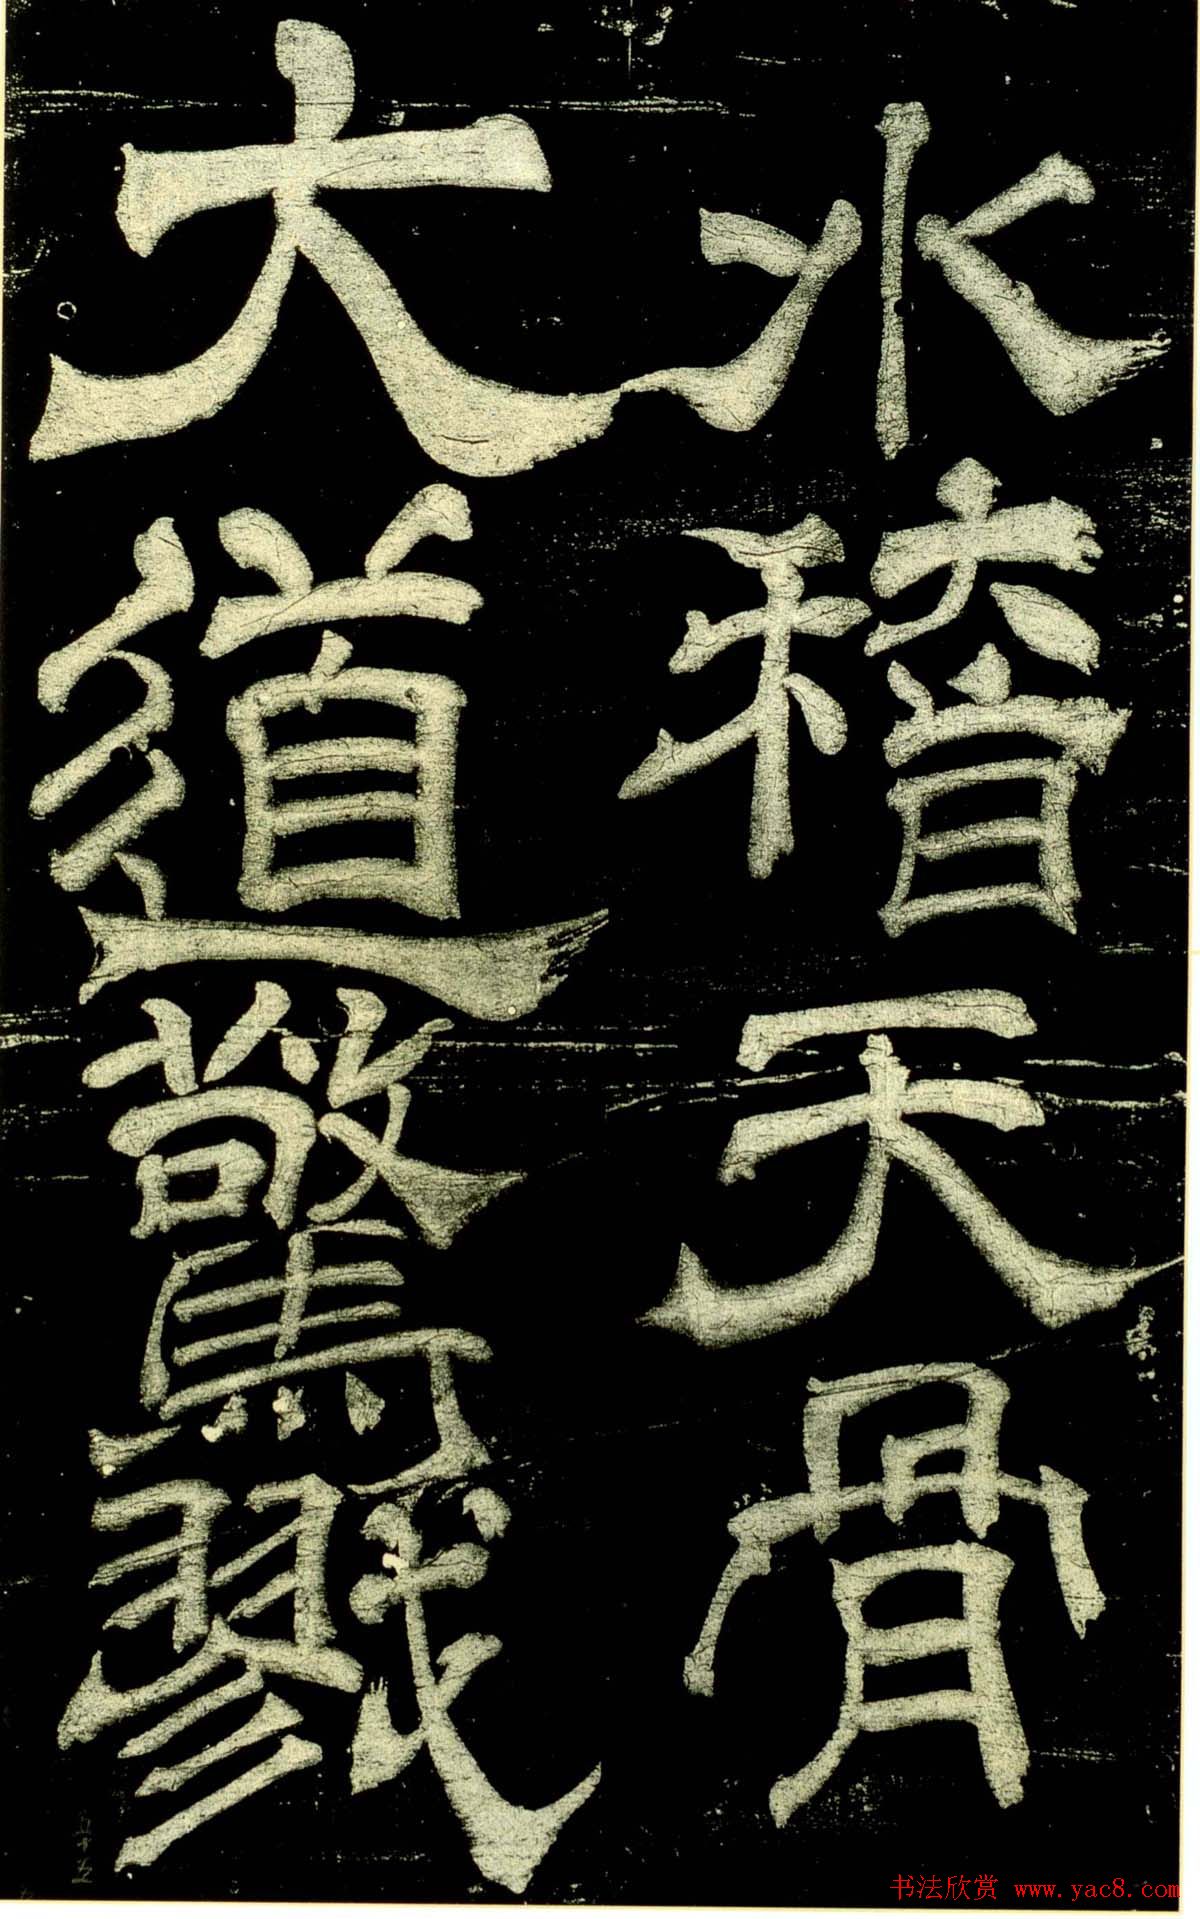 水稽天骨
大道驚戮
书法欣赏 www.yac8.com